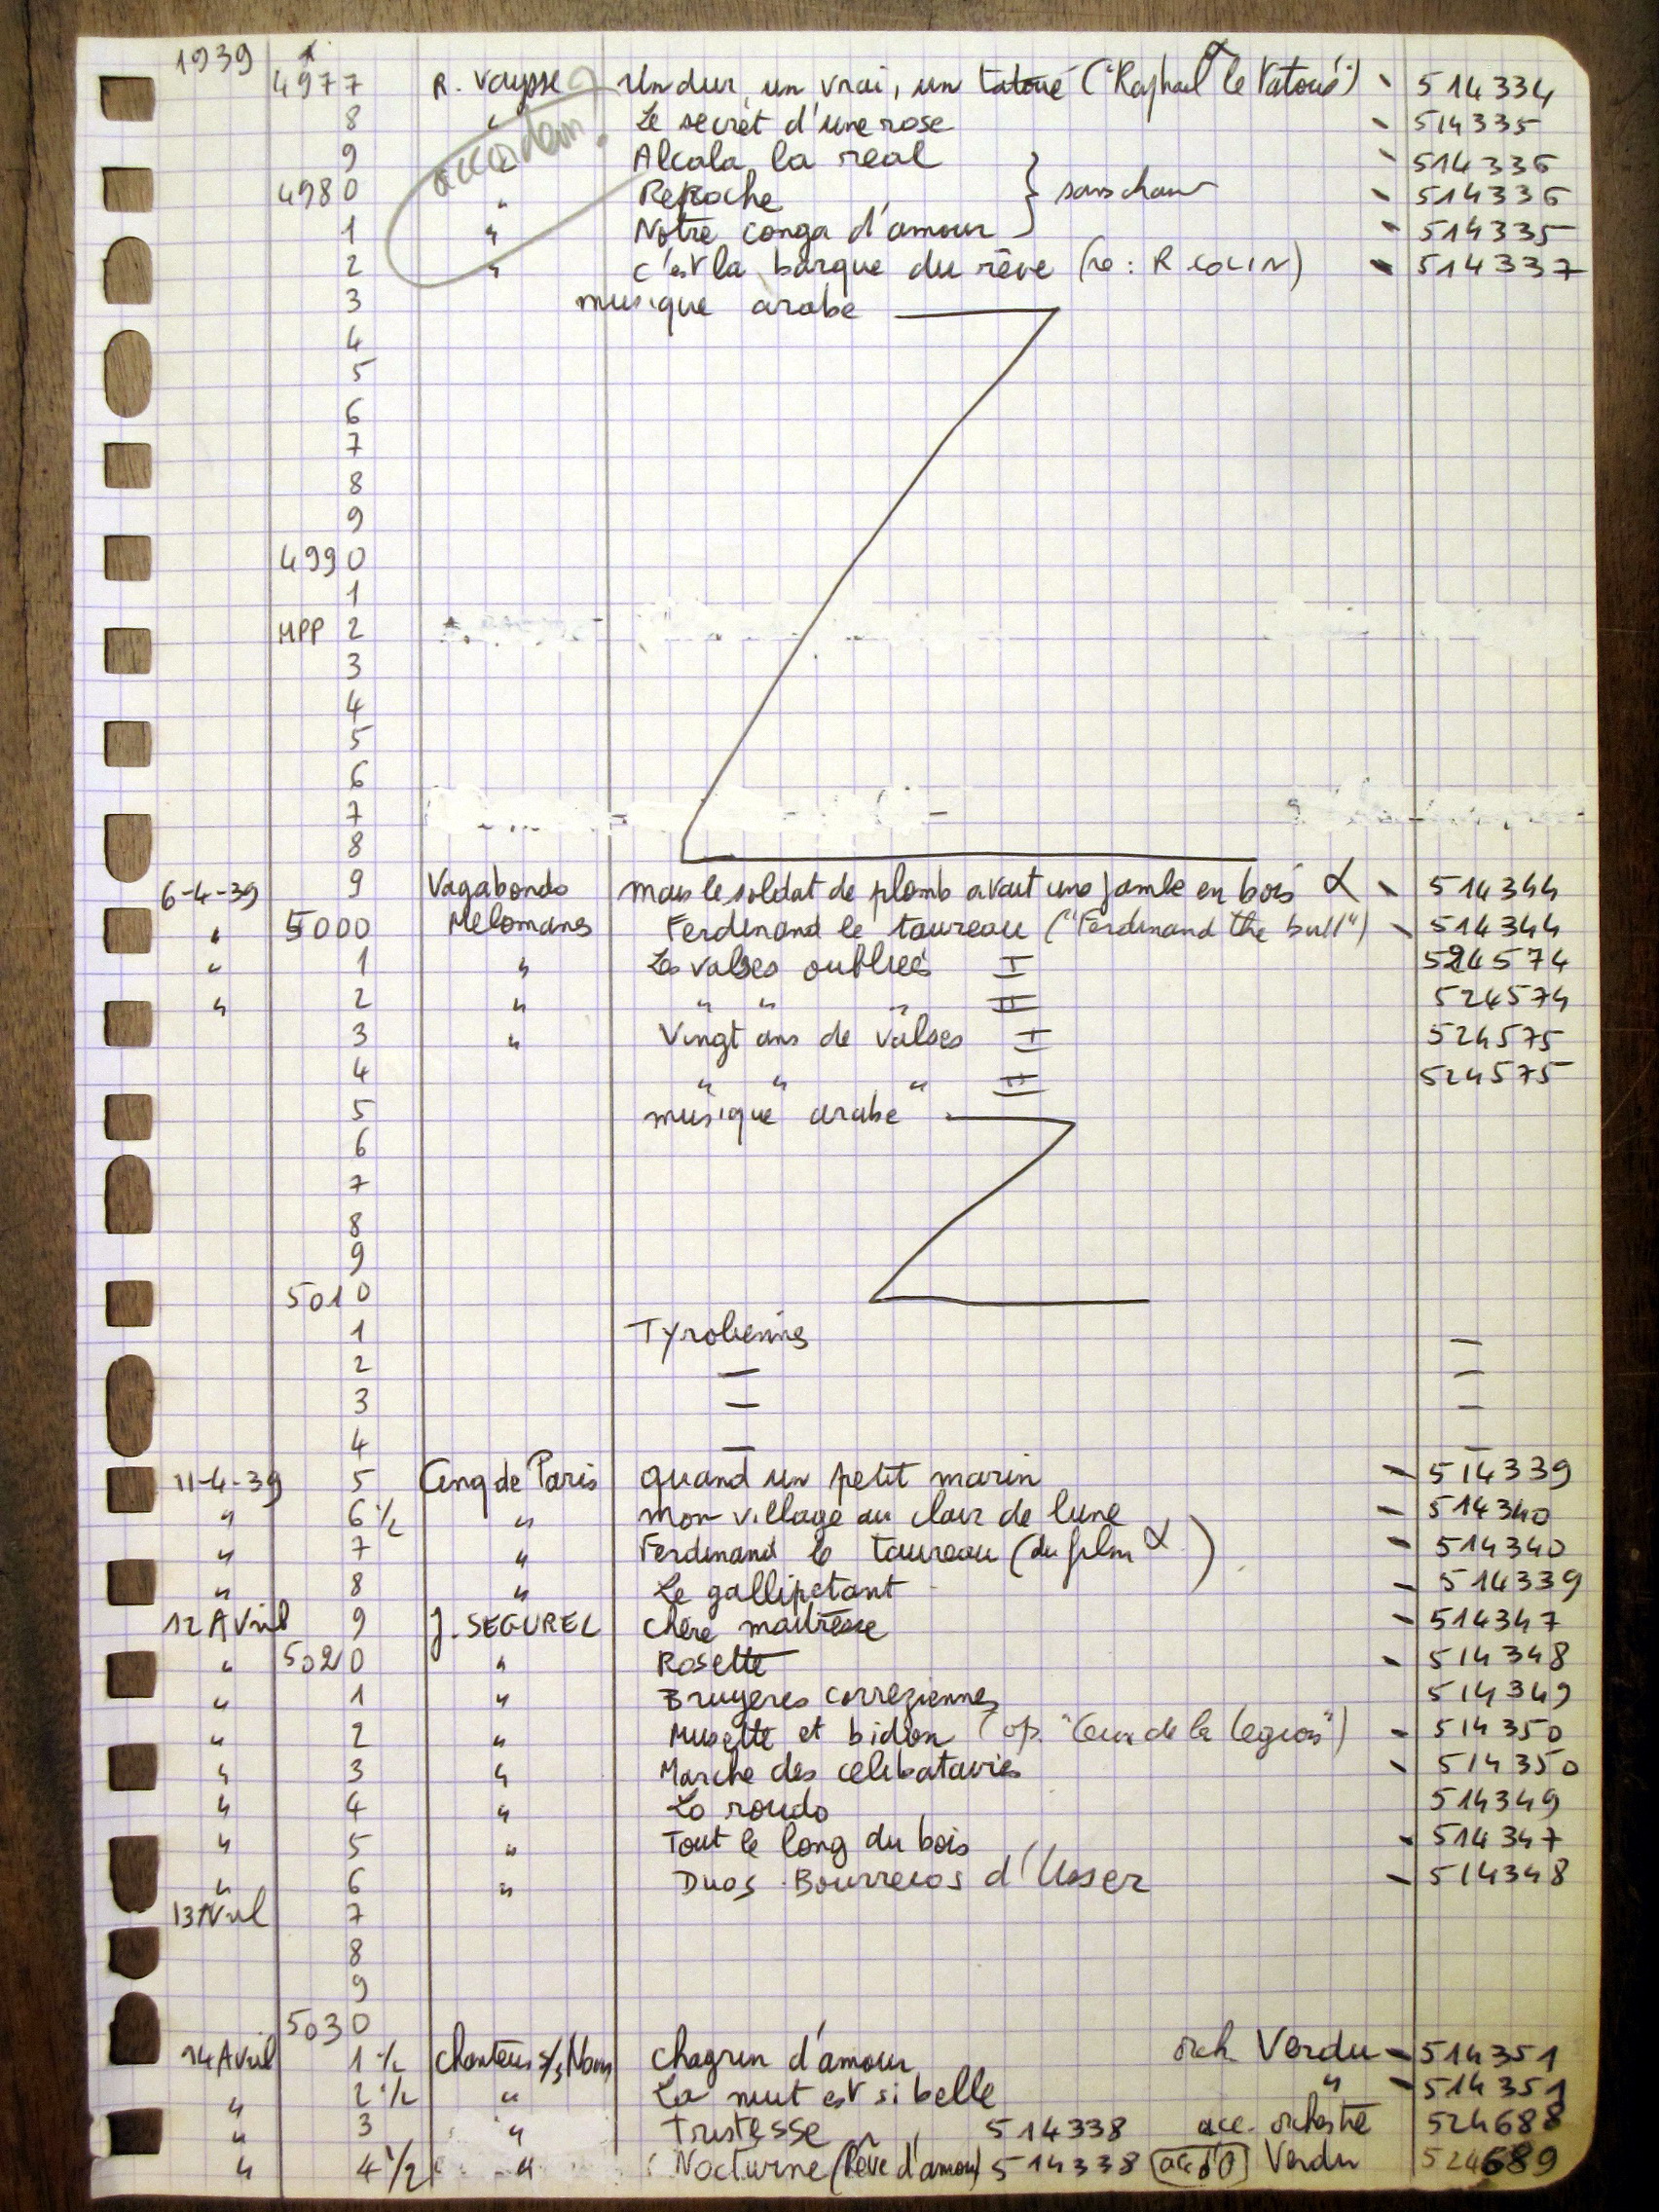 1939
4977 R. Vaysse Un dur, un vrai, un tatoué ("Raphael le Tatoué") α 514334
accordéon?
8 " Le secret d'une rose 514335
9 Alcala la real 514336
4980 " Reproche } sans chant 514336
1 " Notre conga d'amour 514335
2 " c'est la barque du rêve (re: R COLIN) 514337
3 musique arabe
4
5
6
7
8
9
4990
1
MPP 2
3
4
5
6
7
8
6-4-39 9 Vagabonds mais le soldat de plomb avait une jambe en bois α 514344
" 5000 Melomanes Ferdinand le taureau ("Ferdinand the bull") 514344
" 1 " Les valses oubliées I 524574
" 2 " " " " II 524574
3 " Vingt ans de valses I 524575
4 " " " II 524575
5 musique arabe
6
7
8
9
5010
1 Tyroliennes —
2 — —
3 — —
4 — —
11-4-39 5 Cinq de Paris quand un petit marin 514339
" 6 1/2 " mon village au clair de lune 514340
" 7 " Ferdinand le taureau (du film α ) 514340
" 8 " Le gallipetant 514339
12 Avril 9 J. SEGUREL chère maitresse 514347
" 5020 " Rosette 514348
" 1 " Bruyeres correziennes 514349
" 2 " Musette et bidon (op. "Ceux de la légion") 514350
" 3 " Marche des celibataires 514350
" 4 " Lo roudo 514349
" 5 " Tout le long du bois 514347
" 6 " Duos Bourreios d'Usser 514348
13 Avril 7
8
9
5030
14 Avril 1 1/2 Chanteur s/s Nom chagrin d'amour orch. Verdu 514351
" 2 1/2 " La nuit est si belle " 514351
" 3 " Tristesse 514338 acc. orchestre 524688
" 4 1/2 " Nocturne (Rêve d'amour) 514338 Verdu 524689